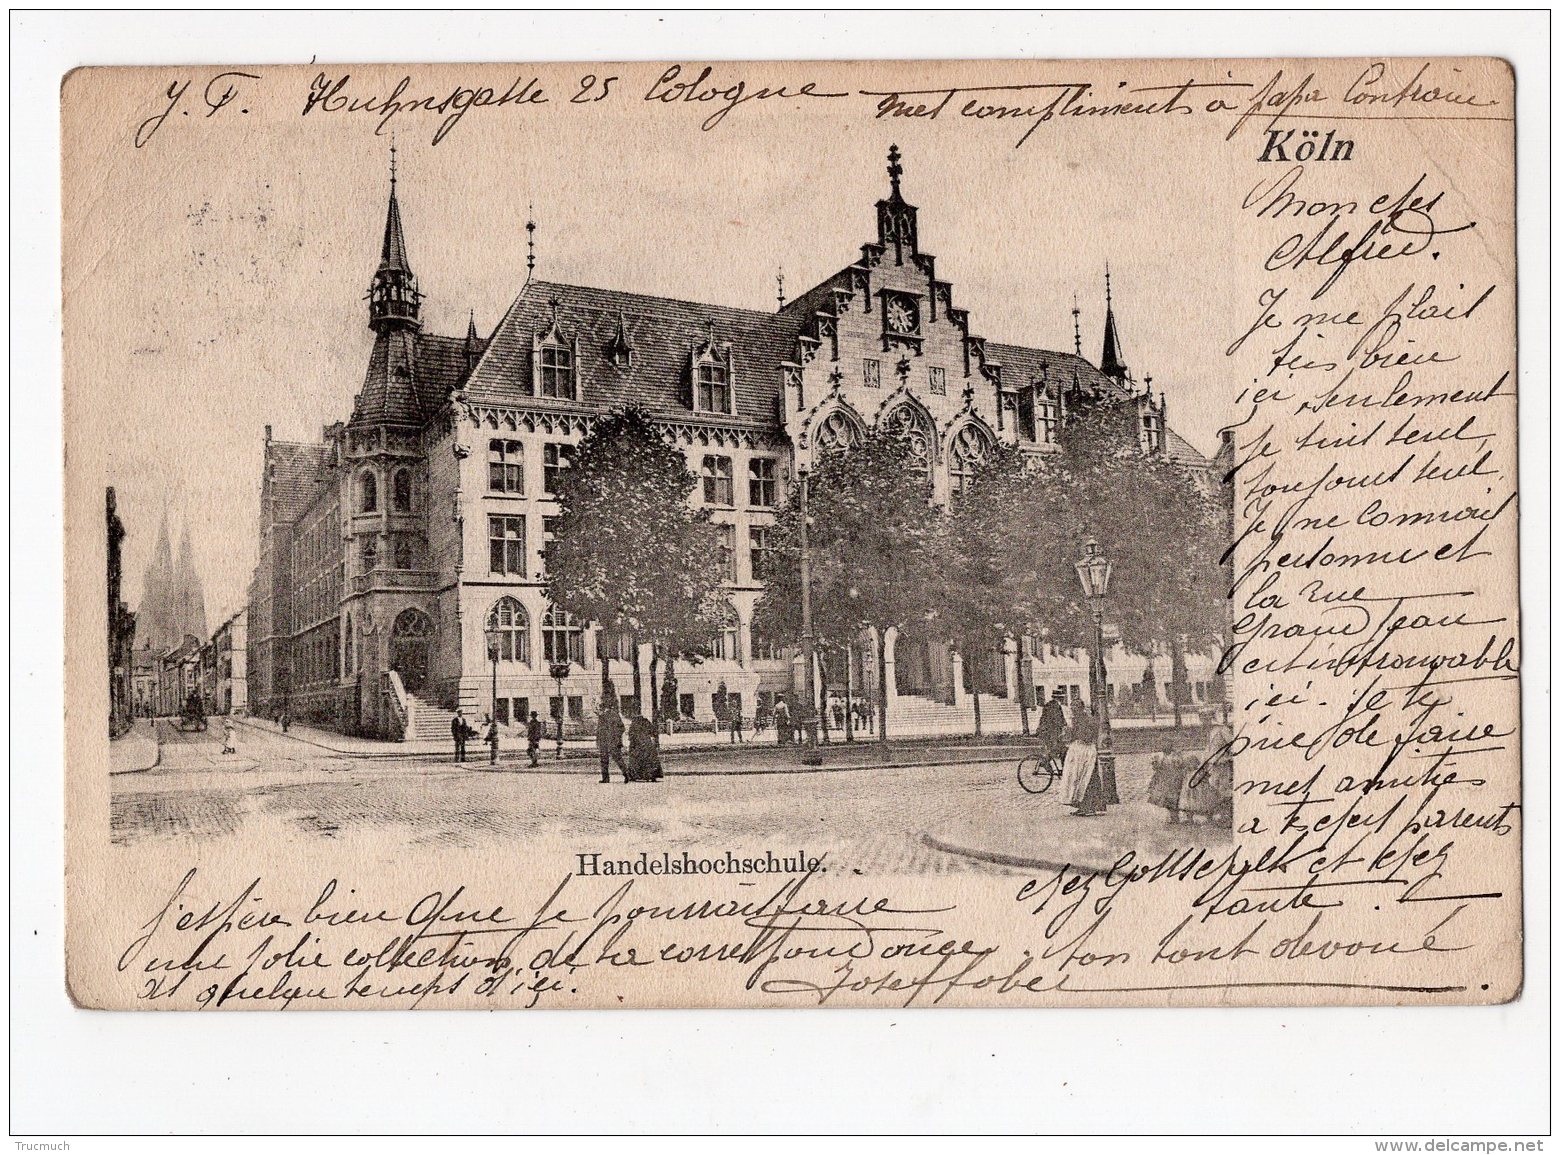 J. F. Huhnsgasse 25 Cologne
mes compliments à papa
Köln
Mon cher
Alfred.
Je me plait
très bien
ici, seulement
je suis seul,
toujours seul.
Je ne connait
personne et
la rue
Grand Jean
est introuvable
ici. Je te
prie de faire
mes amitiés
a tes chers parents
chez Gottschalk et chez
tante.
Handelshochschule.
J'espère bien que je pourrait faire
une jolie collection de ta correspondance.
quelque temps d'ici.
ton tout dévoué
Josef
Trucmuch
www.delcampe.net